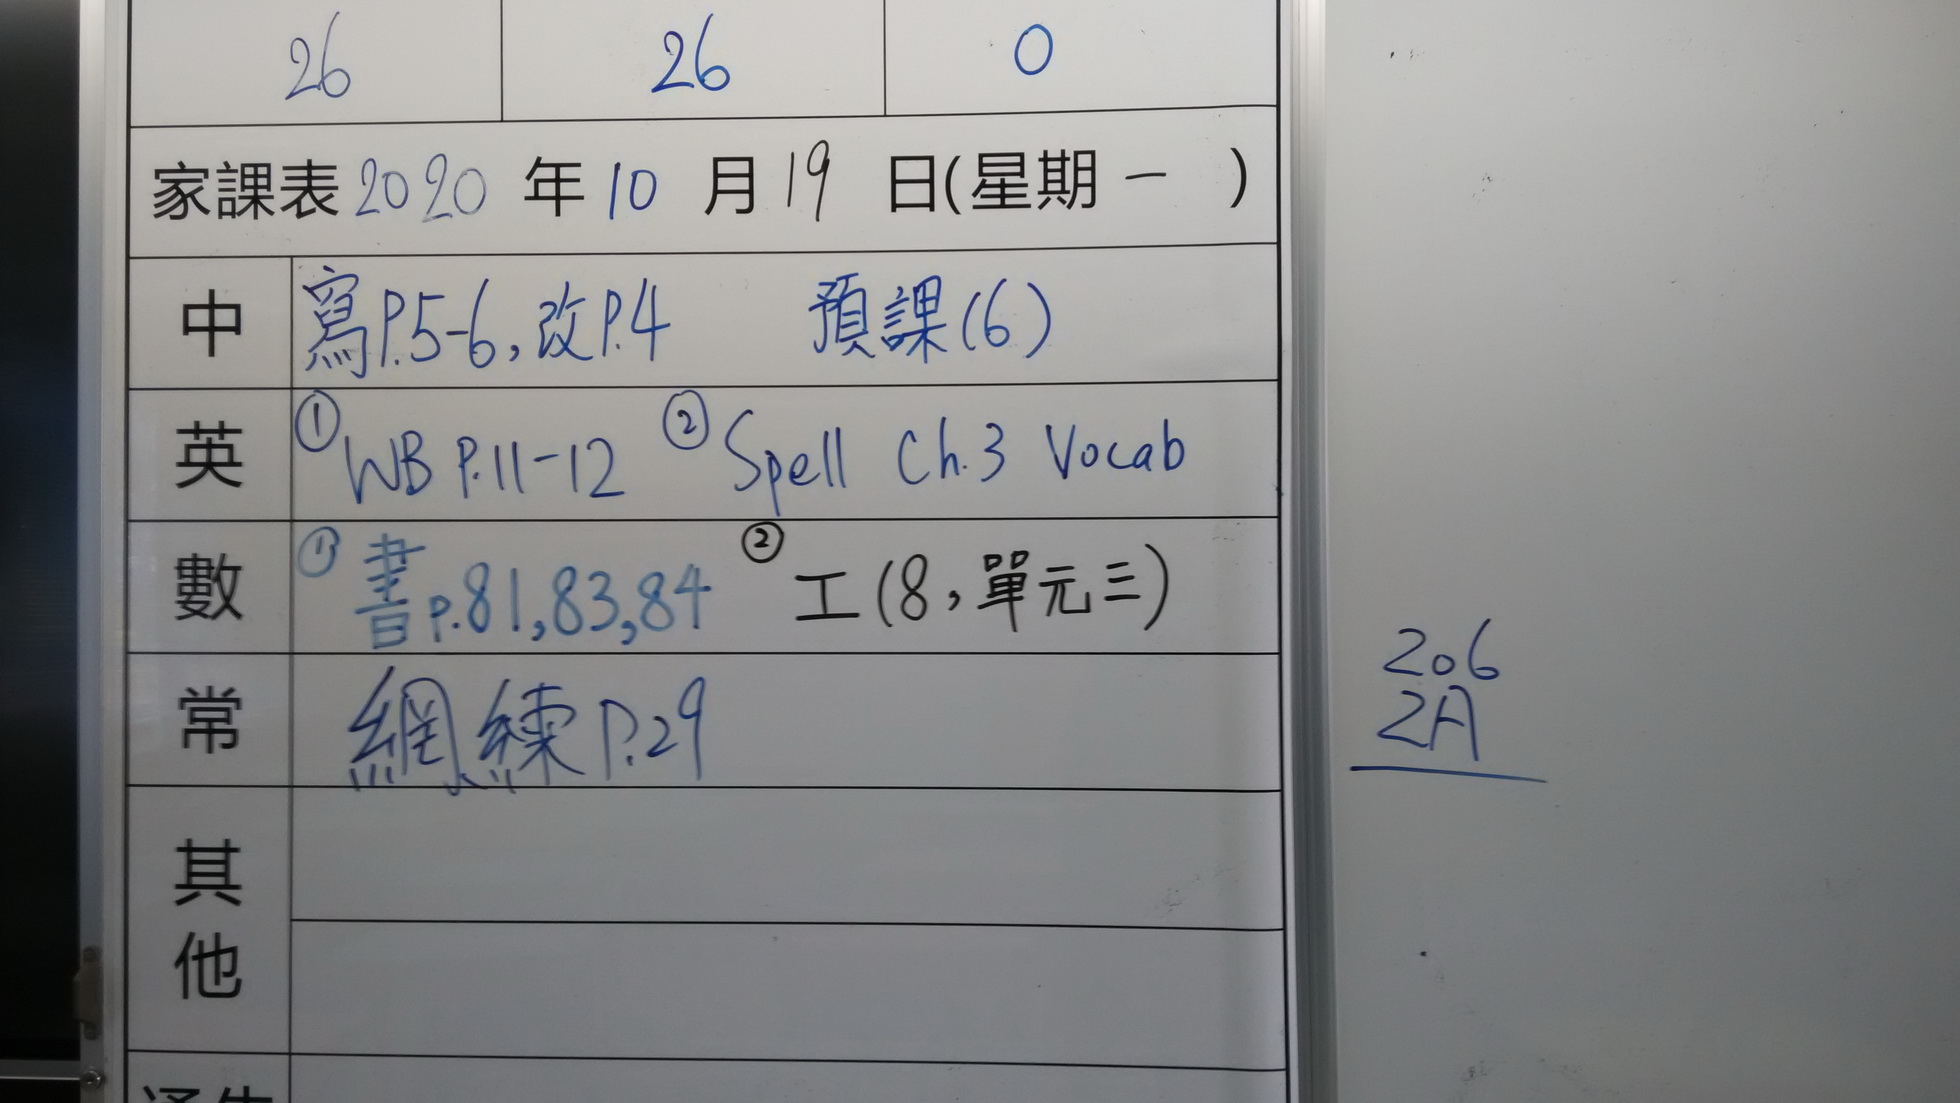 26 26 0
家課表 2020 年 10 月 19 日(星期 一 )
中 寫P.5-6,改P.4 預課(6)
英 ①WB P.11-12 ②Spell Ch.3 Vocab
數 ①書p.81,83,84 ②工(8,單元三)
常 網練P.29
其他
206
2A